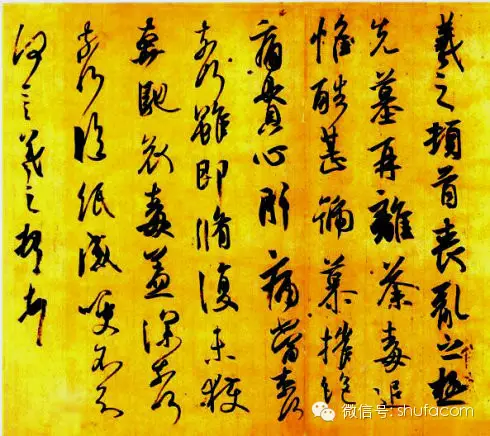 羲之頓首喪亂之極
先墓再離荼毒追
惟酷甚號慕摧絕
痛貫心肝痛當奈何
奈何雖即脩復未獲
奔馳哀毒益深奈何
奈何臨紙感哽不知
何言羲之頓首頓首
微信号: shufacom